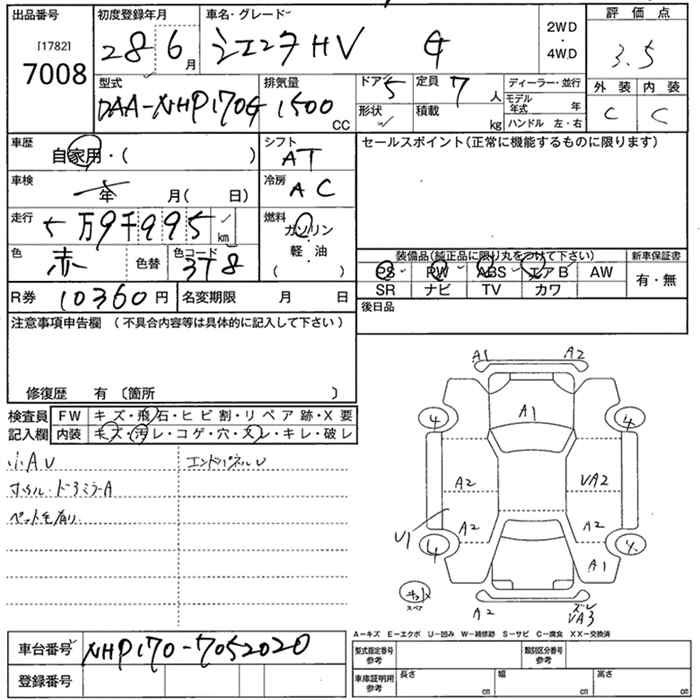 出品番号
[1782]
7008
初度登録年月
28 6月
車名・グレード
シエンタHV G
2WD
・
4WD
評価点
3.5
型式
DAA-NHP170G
排気量
1500
CC
ドア 5
形状
定員 7 人
積載 kg
ディーラー・並行
モデル年式 年
ハンドル 左・右
外装 内装
C C
車歴
自家用・( )
シフト
AT
セールスポイント(正常に機能するものに限ります)
車検
年 月( 日)
冷房
AC
走行
5万9千995 km
燃料
ガソリン
軽・油
( )
色
赤
色替
色コード
3T8
装備品(純正品に限り丸をつけて下さい)
PS PW ABS エアB AW
SR ナビ TV カワ
新車保証書
有・無
R券 10360円
名変期限 月 日
後日品
注意事項申告欄 (不具合内容等は具体的に記入して下さい)
修復歴 有 〔箇所 〕
検査員
記入欄
FW キズ・飛石・ヒビ割・リペア跡・X要
内装 キズ・汚レ・コゲ・穴・スレ・キレ・破レ
小AU
エンドパネルU
ホイル・ドアミラーA
ペット毛有り
A1 A2
4 A1 4
A2 UA2
U1 A2 A2
4 A1
スペア
A2 ズレ
UA3
A−キズ E−エクボ U−凹み W−補修跡 S−サビ C−腐食 XX−交換済
車台番号 NHP170-7052020
登録番号
型式指定番号
参考
類別区分番号
参考
車庫証明用
参考
長さ cm
幅 cm
高さ cm